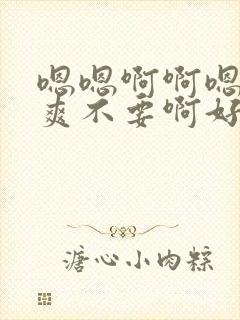 嗯嗯啊啊嗯
爽不要啊好
溏心小肉粽